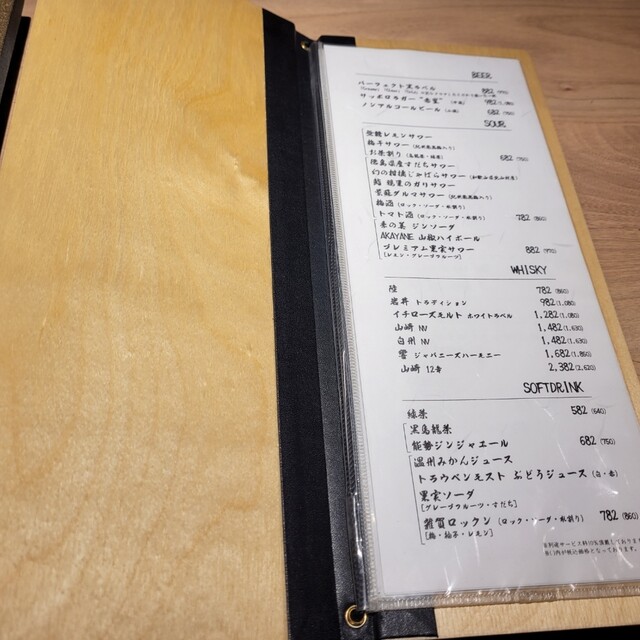 BEER
パーフェクト黒ラベル 882 (970)
サッポロラガー "赤星" (中瓶) 982 (1,080)
ノンアルコールビール (小瓶) 682 (750)
SOUR
発酵レモンサワー
梅干サワー
お茶割り (烏龍茶・緑茶) 682 (750)
徳島県産すだちサワー
幻の柑橘じゃばらサワー (和歌山県北山村産)
鮨 銚里のガリサワー
紫蘇ダルマサワー
梅酒 (ロック・ソーダ・水割り)
トマト酒 (ロック・ソーダ・水割り) 782 (860)
季の美 ジンソーダ
AKAYANE 山椒ハイボール
プレミアム果実サワー 882 (970)
[レモン・グレープフルーツ]
WHISKY
陸 782 (860)
岩井 トラディション 982 (1,080)
イチローズモルト ホワイトラベル 1,282 (1,080)
山崎 NV 1,482 (1,630)
白州 NV 1,482 (1,630)
響 ジャパニーズハーモニー 1,682 (1,850)
山崎 12年 2,382 (2,620)
SOFTDRINK
緑茶 582 (640)
黒烏龍茶
能勢ジンジャエール 682 (750)
温州みかんジュース
トラウベンモスト ぶどうジュース (白・赤)
果実ソーダ
[グレープフルーツ・すだち]
雑賀ロックン (ロック・ソーダ・水割り) 782 (860)
[梅・柚子・レモン]
※別途サービス料10%頂戴しております
※()内が税込価格となっております。